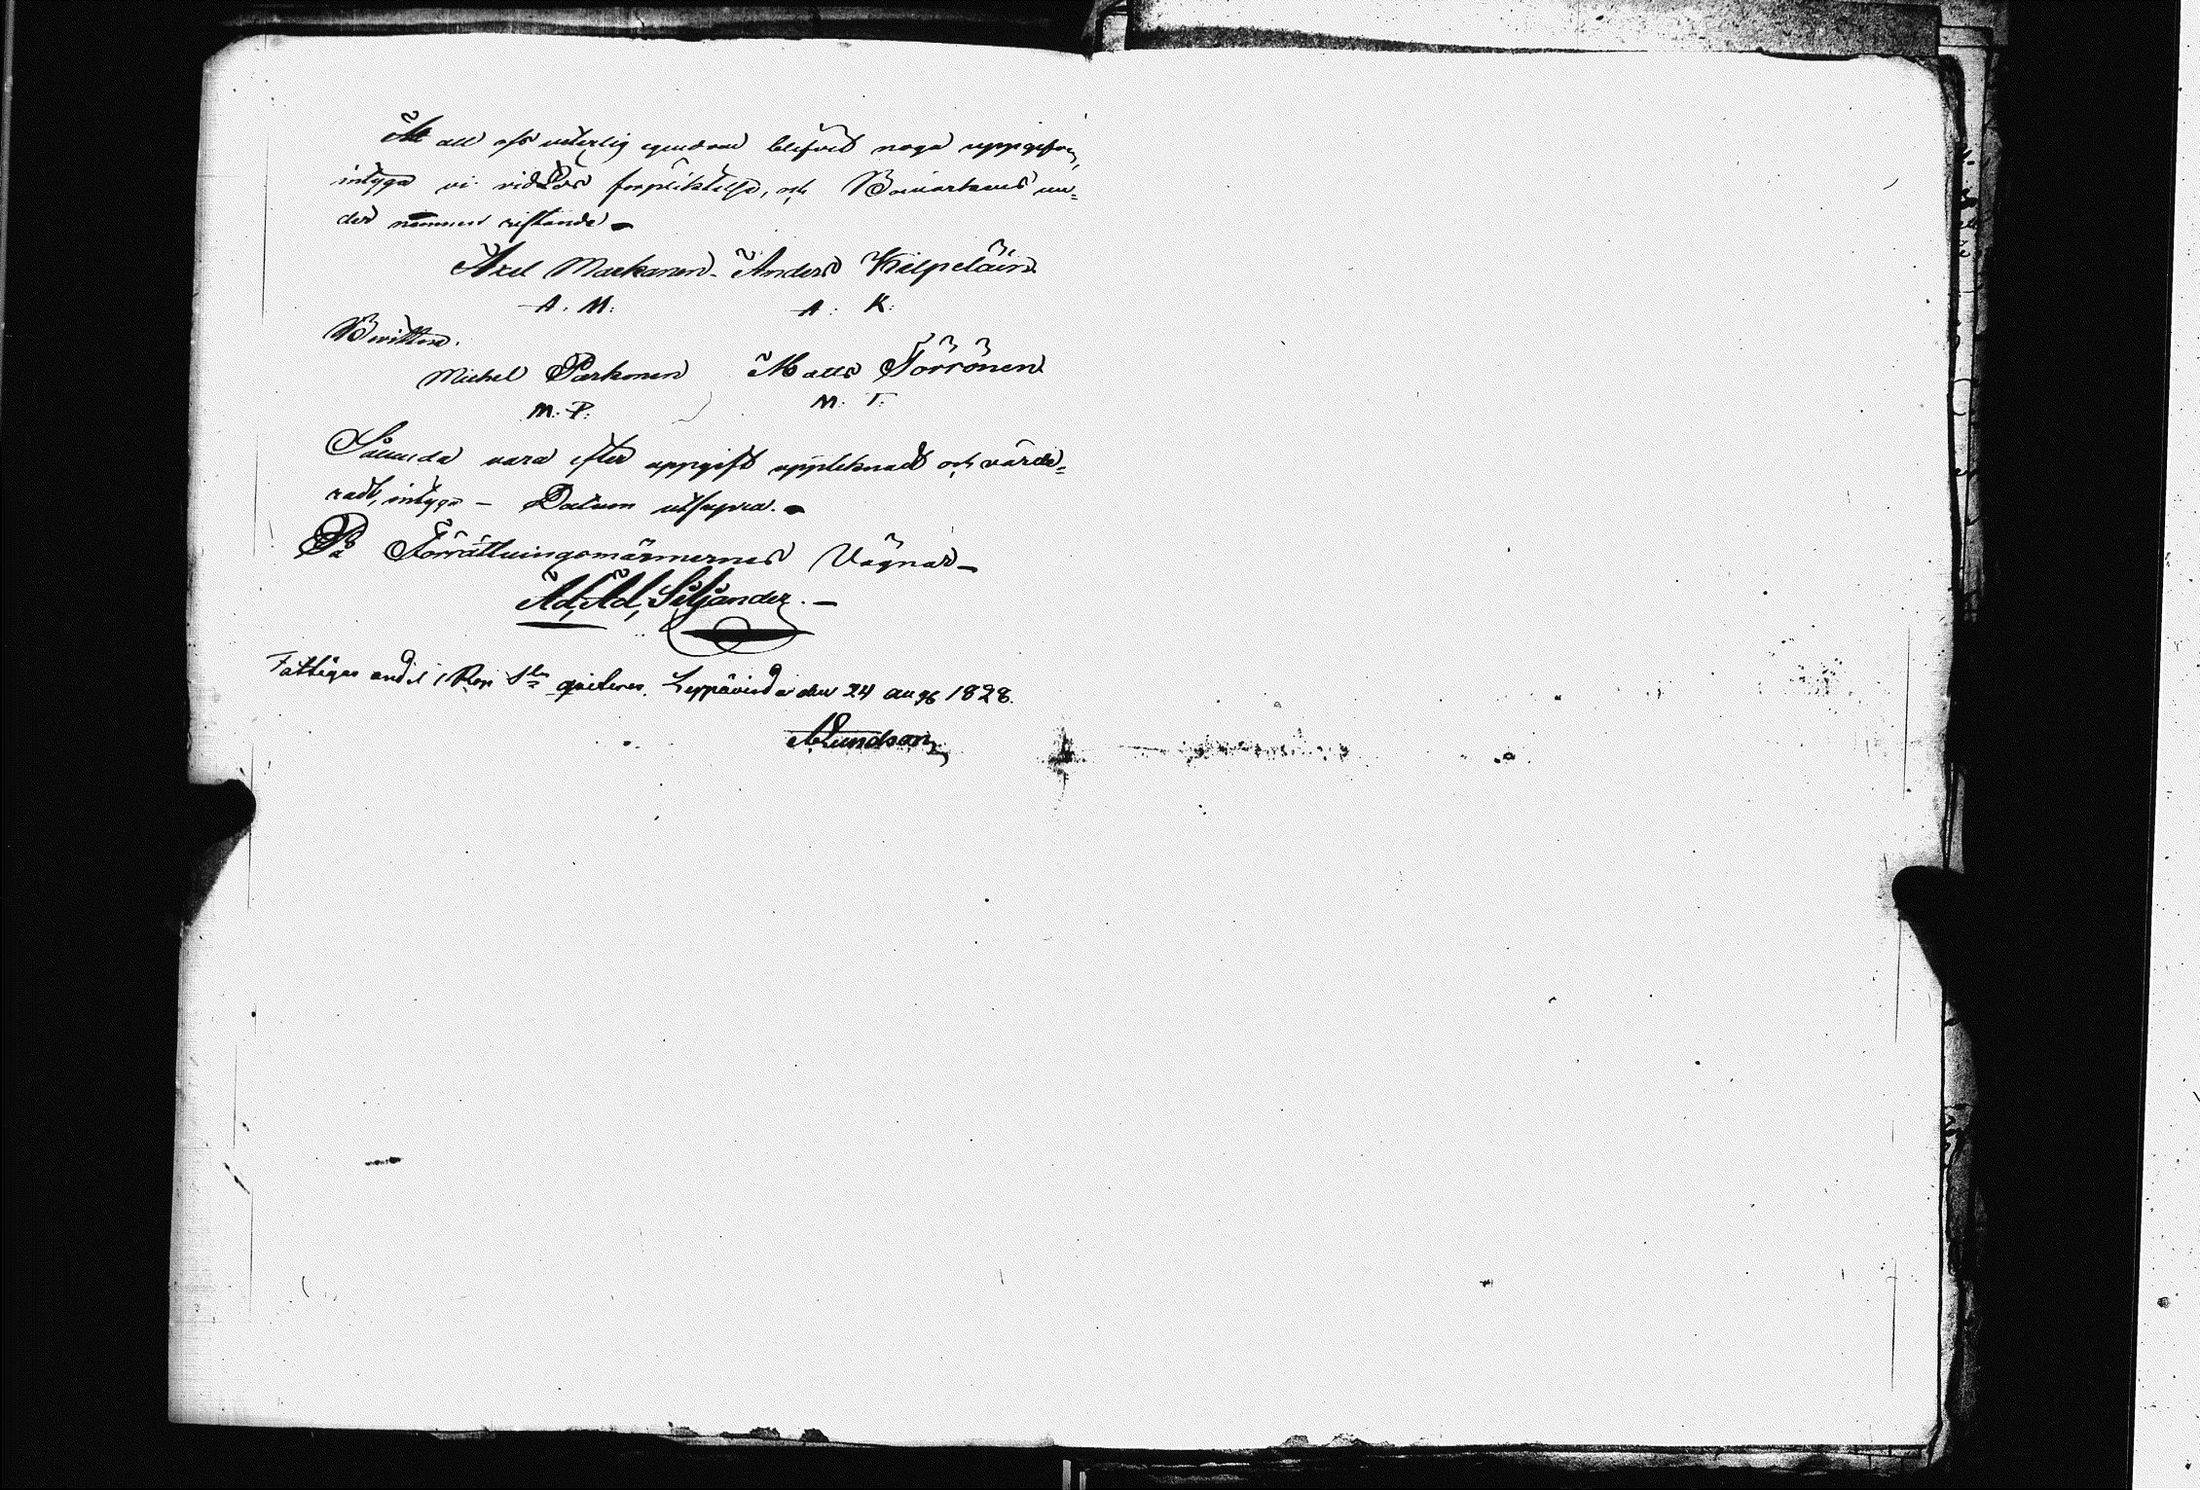 Att all oss veterlig egendom blifvit noga uppgifven,
intyga vi vid Eds förpliktelse, och Bomärkens un=
der namnen ristande
Axel Markanen Anders Kilpeläin
A. M. A: K:
Bevittna.
Michel Parkonen Matts Törrönen
M: P: M: T:
Sålunda vara efter uppgift upptecknadt och värde=
radt, intyga – Datum utsupra.
På Förrättningsmännernes Vägnar
Ad, Ad, Siljander.
Fattiges andel 1 Rop Sr qvitteres. Leppävirda den 24 aug 1828.
Lundson